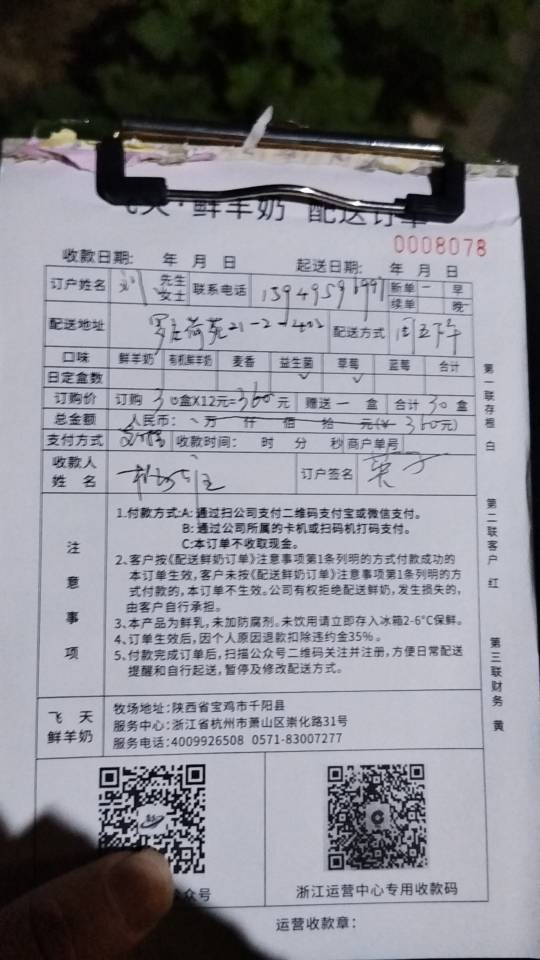 飞天·鲜羊奶 配送订单
0008078
收款日期: 年 月 日 起送日期: 年 月 日
订户姓名 刘 先生 女士 联系电话 新单 一 早
续单 晚
配送地址 21-2-402 配送方式 周五下午
口味 鲜羊奶 有机鲜羊奶 麦香 益生菌 草莓 蓝莓 合计
日定盒数 ✓ ✓
订购价 订购 30盒X12元=360元 赠送 一 盒 合计 30 盒
总金额 人民币: 万 仟 佰 拾 元(¥ 360元)
支付方式 收款时间: 时 分 秒 商户单号
收款人
姓 名 订户签名
注意事项
1.付款方式:A: 通过扫公司支付二维码支付宝或微信支付。
B: 通过公司所属的卡机或扫码机打码支付。
C:本订单不收取现金。
2、客户按《配送鲜奶订单》注意事项第1条列明的方式付款成功的
本订单生效,客户未按《配送鲜奶订单》注意事项第1条列明的方
式付款的,本订单不生效。公司有权拒绝配送鲜奶,发生损失的,
由客户自行承担。
3、本产品为鲜乳,未加防腐剂。未饮用请立即存入冰箱2-6°C保鲜。
4、订单生效后,因个人原因退款扣除违约金35%。
5、付款完成订单后,扫描公众号二维码关注并注册,方便日常配送
提醒和自行起送,暂停及修改配送方式。
飞天
鲜羊奶
牧场地址:陕西省宝鸡市千阳县
服务中心:浙江省杭州市萧山区崇化路31号
服务电话:4009926508 0571-83007277
公众号
浙江运营中心专用收款码
运营收款章:
第一联存根 白
第二联客户 红
第三联财务 黄